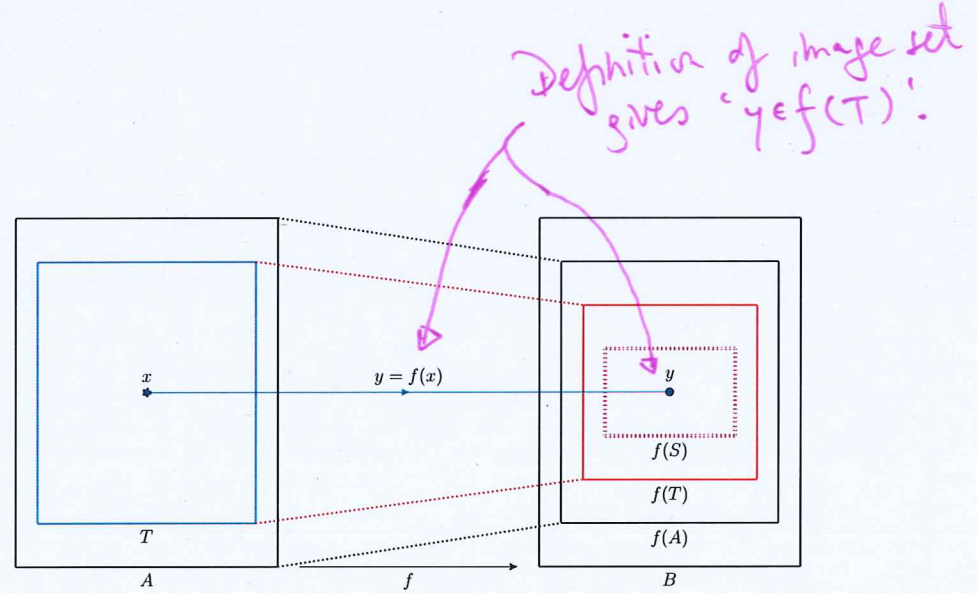 Definition of image set
gives 'y ∈ f(T)'.
x
y = f(x)
y
f(S)
f(T)
T
f(A)
A
f
B